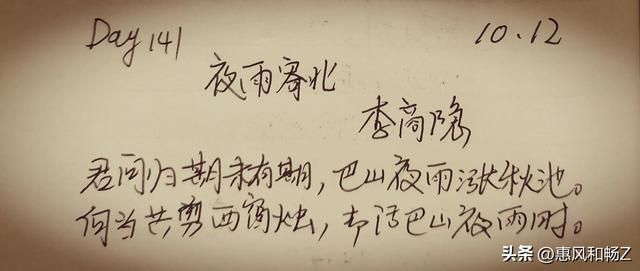 Day 141 10.12
夜雨寄北
李商隐
君问归期未有期，巴山夜雨涨秋池。
何当共剪西窗烛，却话巴山夜雨时。
头条 @惠风和畅Z